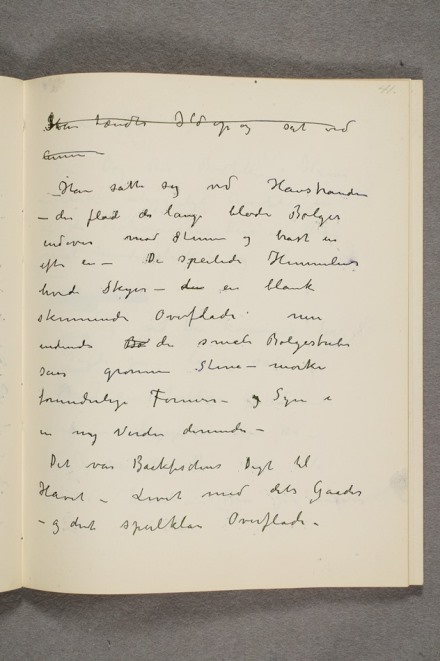 41.
Han tændte Ild op og satt ved
Han satte sig ved Havstranden
– der flød de lange bløde Bølger
indover mod Stenene og brast en
efter en – De speilede Himmelens
hvide Skyer – den en blank
skinnende Overflade. men
indunder Bø de smale Bølger
saaes grønne Stene – mørke
forunderlige Former – og Syn i
en ny Verden derunder –
Det var Backfischens Digt til
Havet – Livet med dets Gaader
– og dets speilklare Overflade –